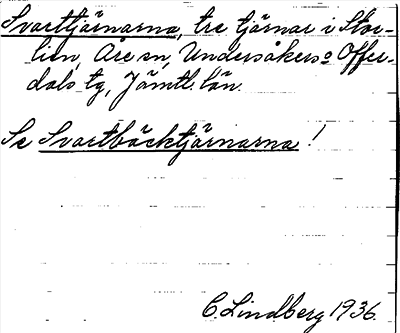 Svarttjärnarna, tre tjärnar i Stor-
lien, Åre sn, Undersåkers o Offer-
dals tg, Jämtl. län.
Se Svartbäcktjärnarna!
C Lindberg 1936.